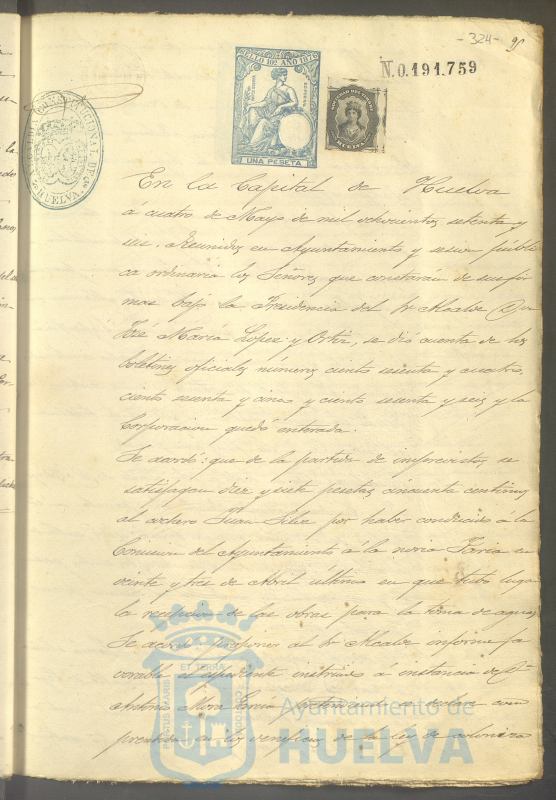 - 324 -
N.0.191.759
SELLO 10º AÑO 1876
UNA PESETA
HUELVA
HUELVA.
En la Capital de Huelva
á cuatro de Mayo de mil ochocientos setenta y
seis. Reunidos en Ayuntamiento y sesion públi
ca ordinaria los Señores que constarán de sus fir
mas bajo la Presidencia del Sr Alcalde Don
José Maria Lopez y Ortiz, se dió cuenta de los
boletines oficiales números ciento sesenta y cuatro,
ciento sesenta y cinco y ciento sesenta y seis y la
Corporacion quedó enterada.
Se acordó: que de la partida de imprevistos se
satisfagan diez y siete pesetas cincuenta centimos
al cochero Juan Silva por haber conducido á la
Comision del Ayuntamiento á la noria en
veinte y tres de Abril último en que tubo lugar
la recepcion de las obras para la toma de aguas.
Se acordó proponer al Sr Alcalde informe fa
vorable el espediente instruido á instancia de Dn
Antonio Mora Garcia se declare com
prendida en los veneficios de la ley de colonias
ET TERRA
PORTUS MARIS
CUSTODIA
Ayuntamiento de
HUELVA